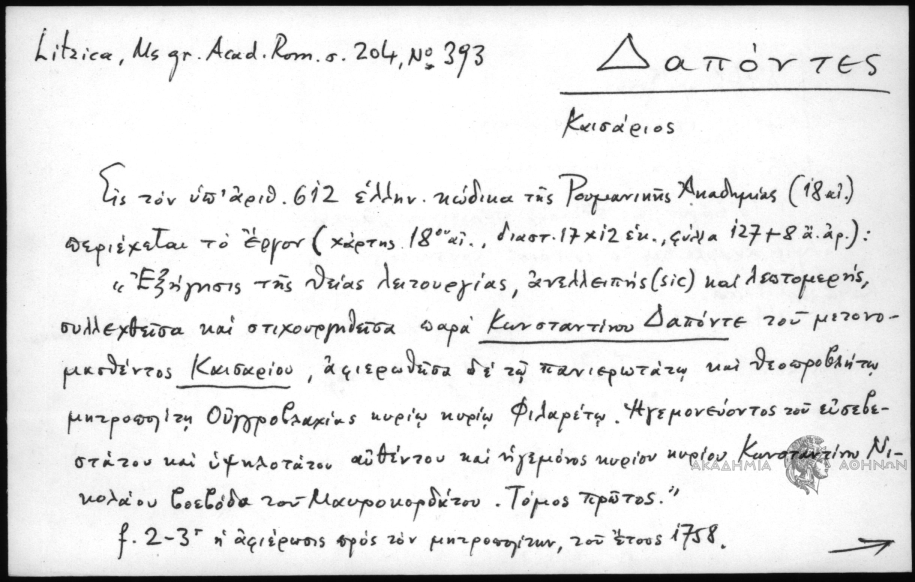 Litzica, Ms gr. Acad. Rom. σ. 204, Nο 393
Δαπόντες
Καισάριος
Εἰς τὸν ὑπ' ἀριθ. 612 ἑλλην. κώδικα τῆς Ρουμανικῆς Ἀκαδημίας (18 αἰ.)
περιέχεται τὸ ἔργον (χάρτης 18ου αἰ., διαστ. 17 x 12 ἑκ., φύλλα 127 + 8 ἄ. ἀρ.):
«Ἐξήγησις τῆς θείας λειτουργίας, ἀνελλειπής (sic) καὶ λεπτομερής,
συλλεχθεῖσα καὶ στιχουργηθεῖσα παρὰ Κωνσταντίνου Δαπόντε τοῦ μετονο-
μασθέντος Καισαρίου, ἀφιερωθεῖσα δὲ τῷ πανιερωτάτῳ καὶ θεοπροβλήτῳ
μητροπολίτῃ Οὑγγροβλαχίας κυρίῳ κυρίῳ Φιλαρέτῳ. Ἡγεμονεύοντος τοῦ εὐσεβε-
στάτου καὶ ὑψηλοτάτου αὐθέντου καὶ ἡγεμόνος κυρίου κυρίου Κωνσταντίνου Νι-
κολάου βοεβόδα τοῦ Μαυροκορδάτου. Τόμος πρῶτος.»
f. 2-3r ἡ ἀφιέρωσις πρὸς τὸν μητροπολίτην, τοῦ ἔτους 1758.
ΑΚΑΔΗΜΙΑ ΑΘΗΝΩΝ